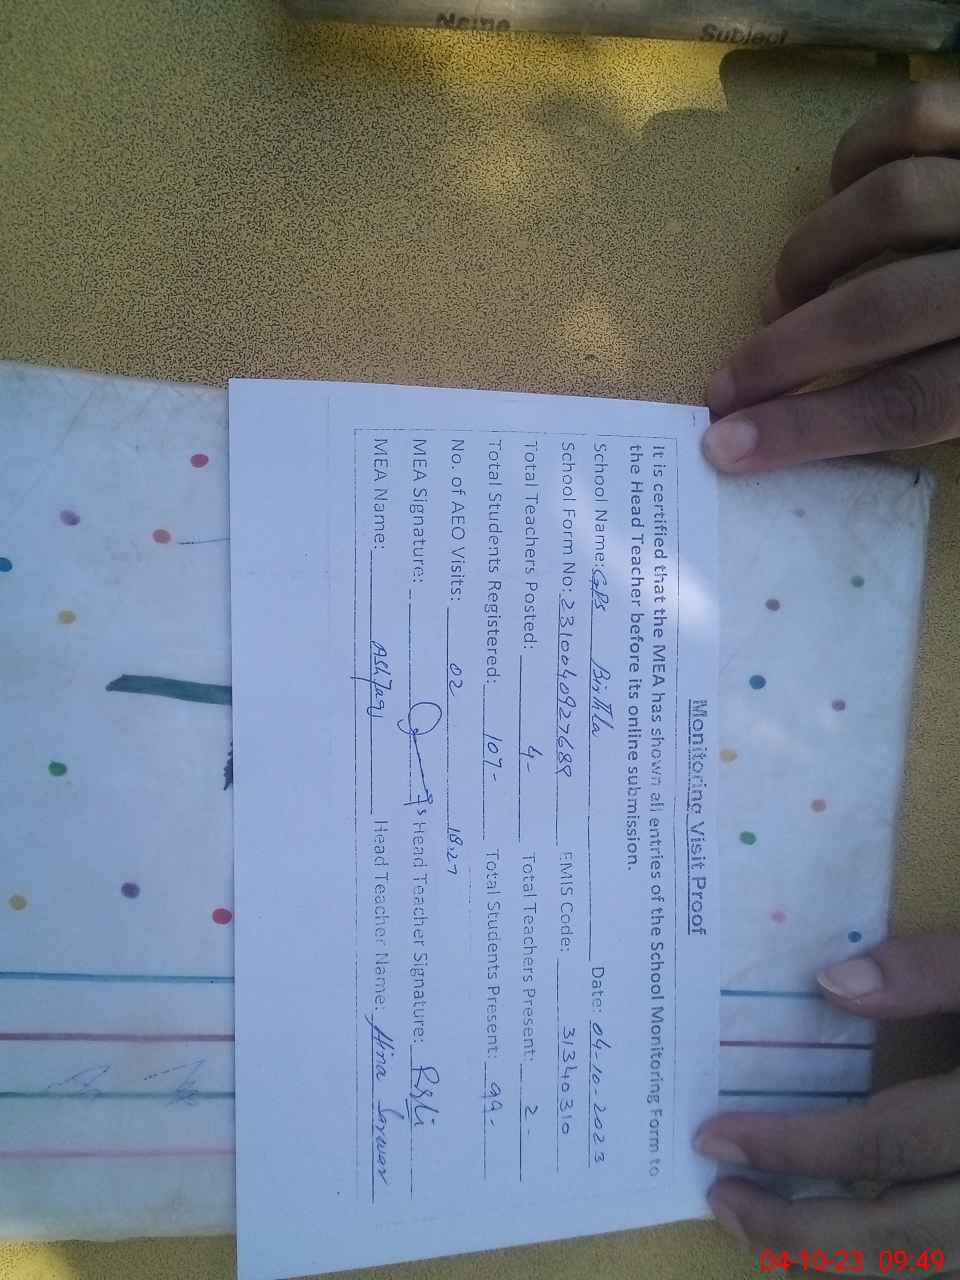 Name Subject
Monitoring Visit Proof
It is certified that the MEA has shown all entries of the School Monitoring Form to
the Head Teacher before its online submission.
School Name: GPS Date: 04-10-2023
School Form No: EMIS Code: 31340310
Total Teachers Posted: 4- Total Teachers Present: 2-
Total Students Registered: 107- Total Students Present: 99-
No. of AEO Visits: 02
MEA Signature: Head Teacher Signature:
MEA Name: Ashfaq Head Teacher Name: Hina Sarwar
04-10-23 09:49